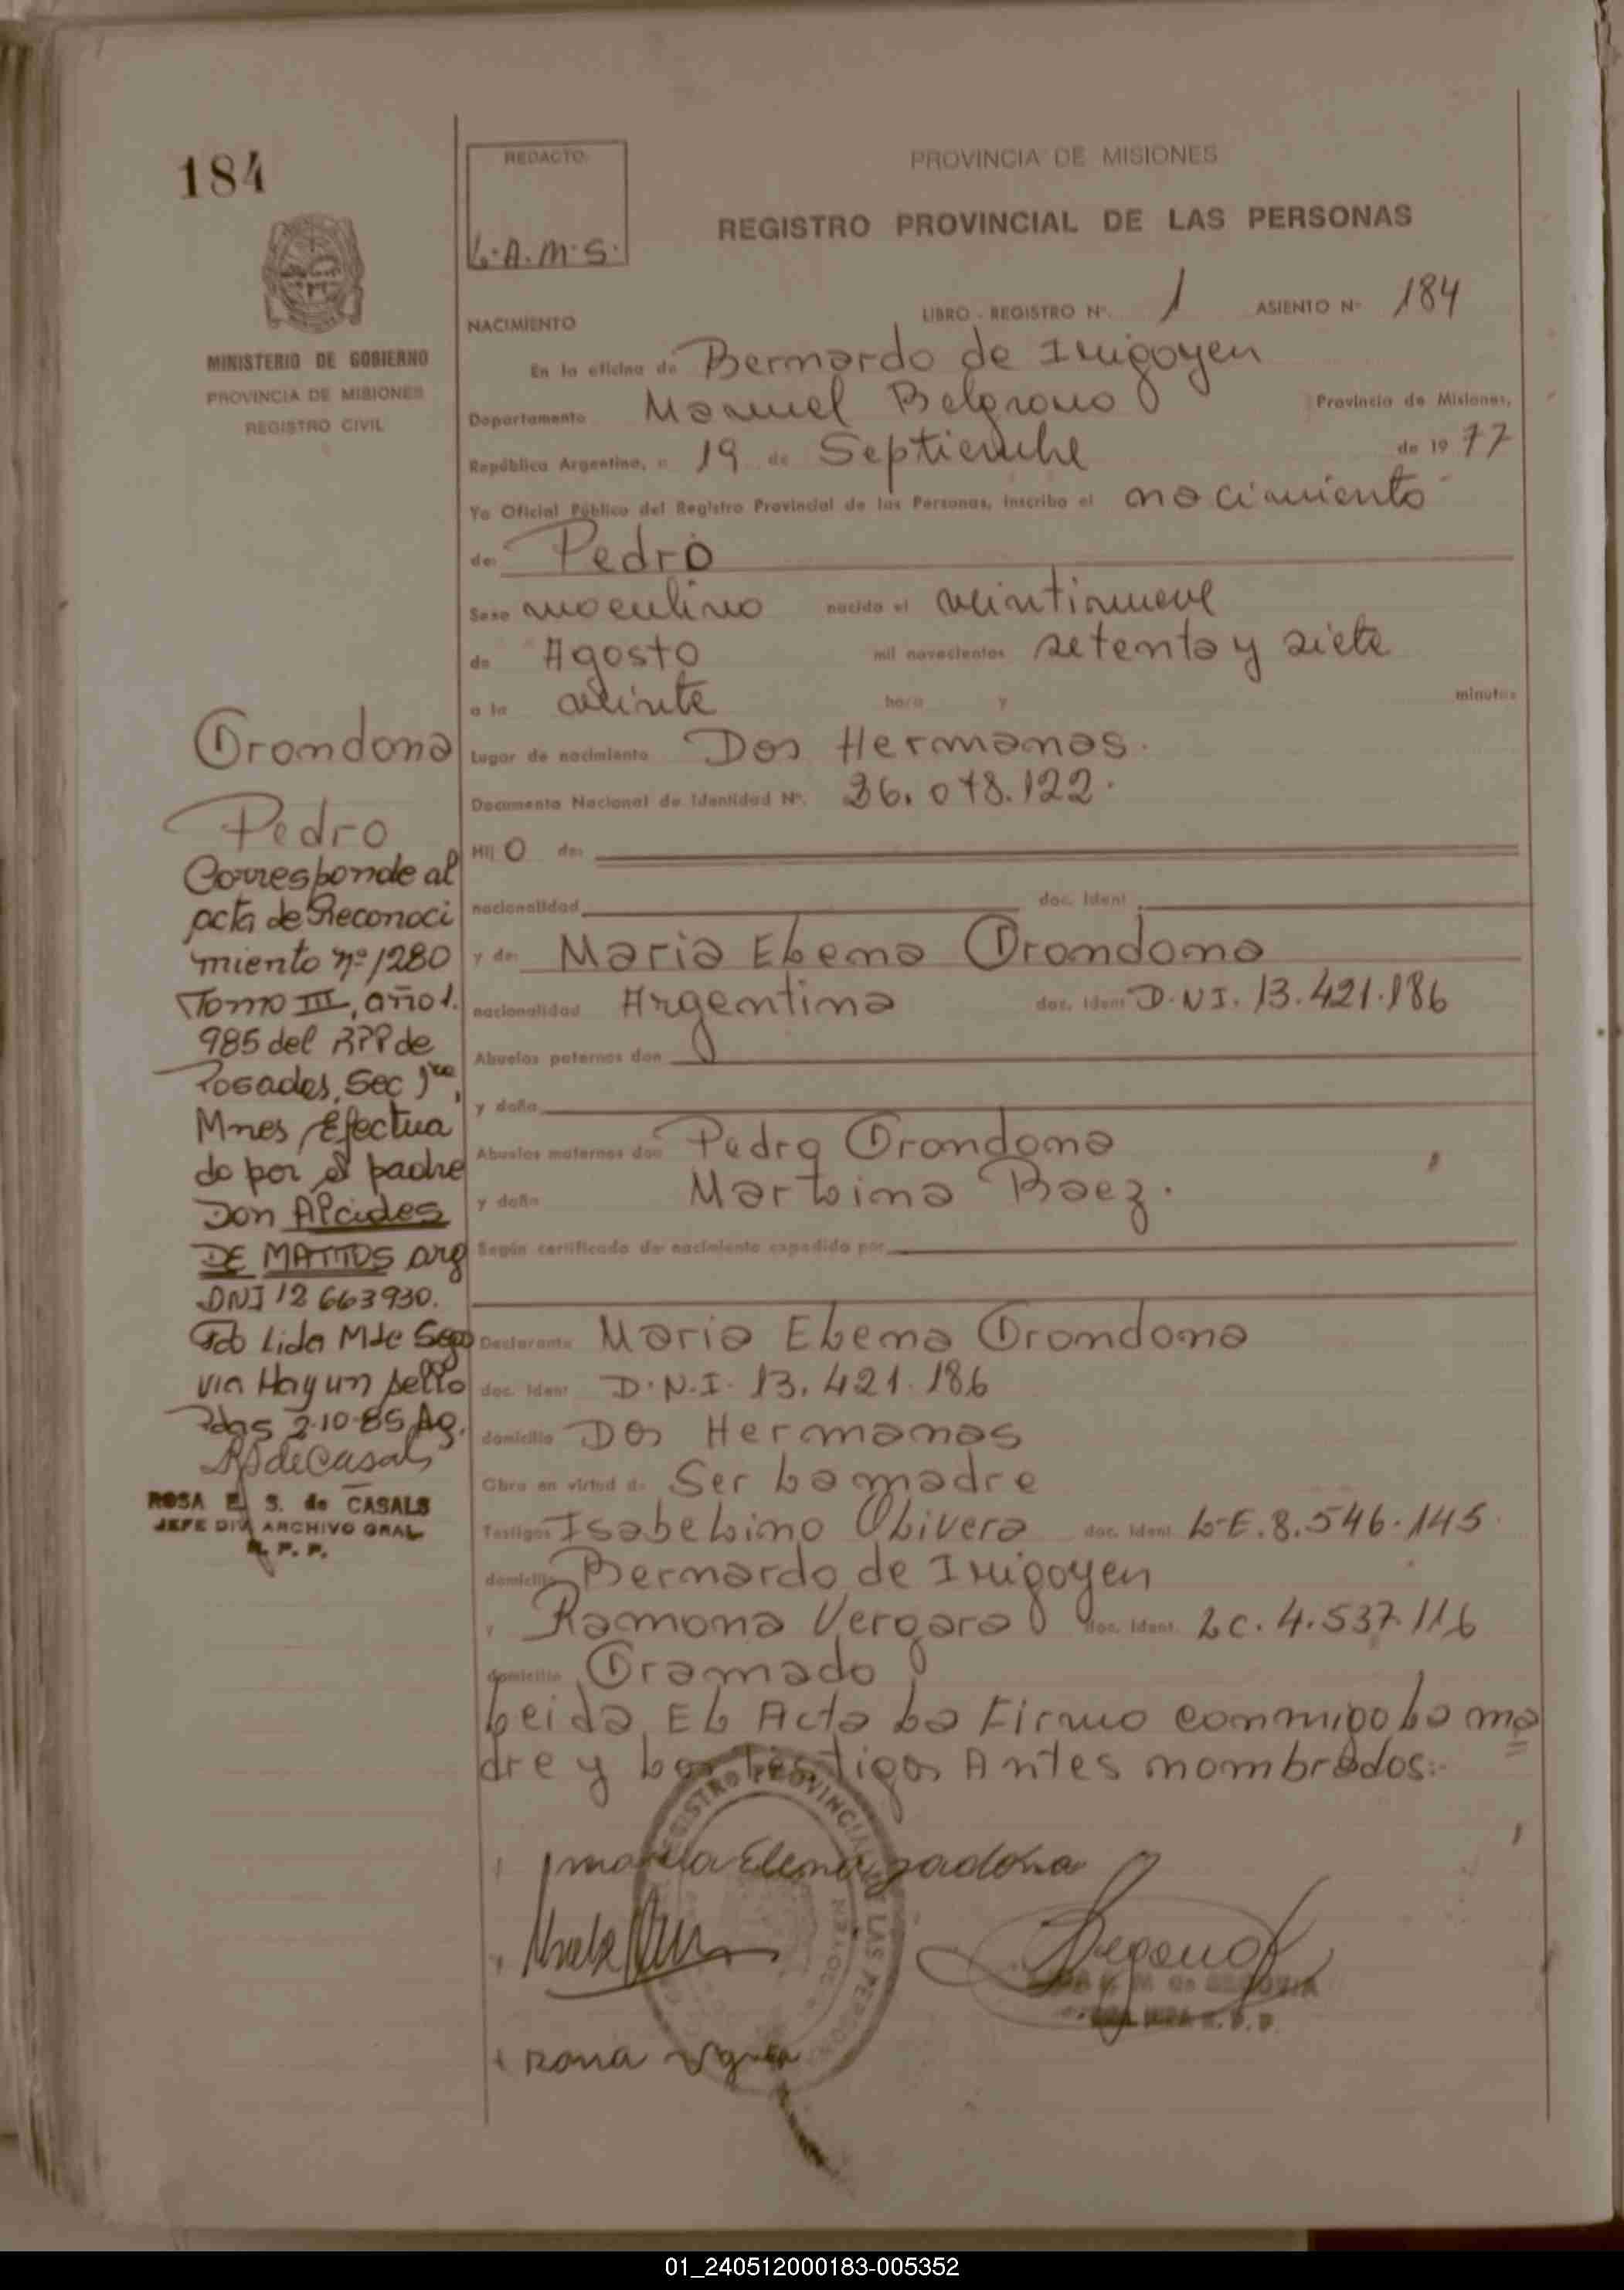 184
MINISTERIO DE GOBIERNO
PROVINCIA DE MISIONES
REGISTRO CIVIL
REDACTO
L.A.M.S.
PROVINCIA DE MISIONES
REGISTRO PROVINCIAL DE LAS PERSONAS
NACIMIENTO LIBRO - REGISTRO Nº. 1 ASIENTO Nº 184
En la oficina de Bernardo de Irigoyen
Departamento Manuel Belgrano Provincia de Misiones,
República Argentina, a 19 de Septiembre de 1977
Yo Oficial Público del Registro Provincial de las Personas, inscribo el nacimiento
de: Pedro
Sexo masculino nacido el veintinueve
de Agosto mil novecientos setenta y siete
a la veinte hora y minutos
Lugar de nacimiento Dos Hermanas.
Documento Nacional de Identidad Nº. 26.078.122.
Hij o de:
nacionalidad doc. Ident.
y de: Maria Elena Grondona
nacionalidad Argentina doc. Ident D.N.I. 13.421.186
Abuelos paternos don
y doña
Abuelos maternos don Pedro Grondona
y doña Martina Baez.
Según certificado de nacimiento expedido por
Declarante Maria Elena Grondona
doc. Ident D.N.I. 13.421.186
domicilio Dos Hermanas
Obra en virtud de Ser la madre
Testigos Isabelino Olivera doc. Ident. L.E. 8.546.145.
domicilio Bernardo de Irigoyen
y Ramona Vergara doc. Ident. L.C. 4.537.116
domicilio Gramado
Leida El Acta La Firma conmigo la ma
dre y los testigos Antes nombrados:-
Grondona
Pedro
Corresponde al
acta de Reconoci
miento nº 1280
Tomo III, año 1.
985 del RPP de
Posadas, Sec 1ra,
Mnes, Efectua
do por el padre
Don Alcides
DE MATTOS arg
DNI 12 663930.
Fdo Lida M de Sego
via Hay un sello
Pdas 2-10-85 Ag.
RSdeCasals
ROSA E. S. de CASALS
JEFE DIV. ARCHIVO GRAL
R. P. P.
maria Elena
REGISTRO PROVINCIAL DE LAS PERSONAS
01_240512000183-005352